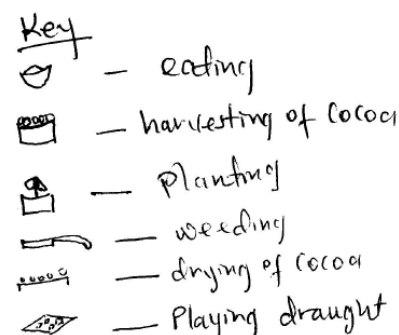 Key
– eating
– harvesting of Cocoa
– Planting
– weeding
– drying of Cocoa
– Playing draught